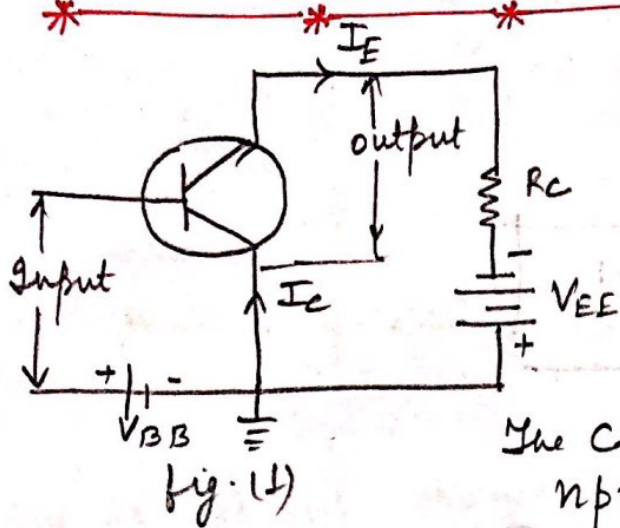 I_E
output
R_C
Input
I_C
-
V_EE
+
+ -
V_BB
fig. (1)
The C
np